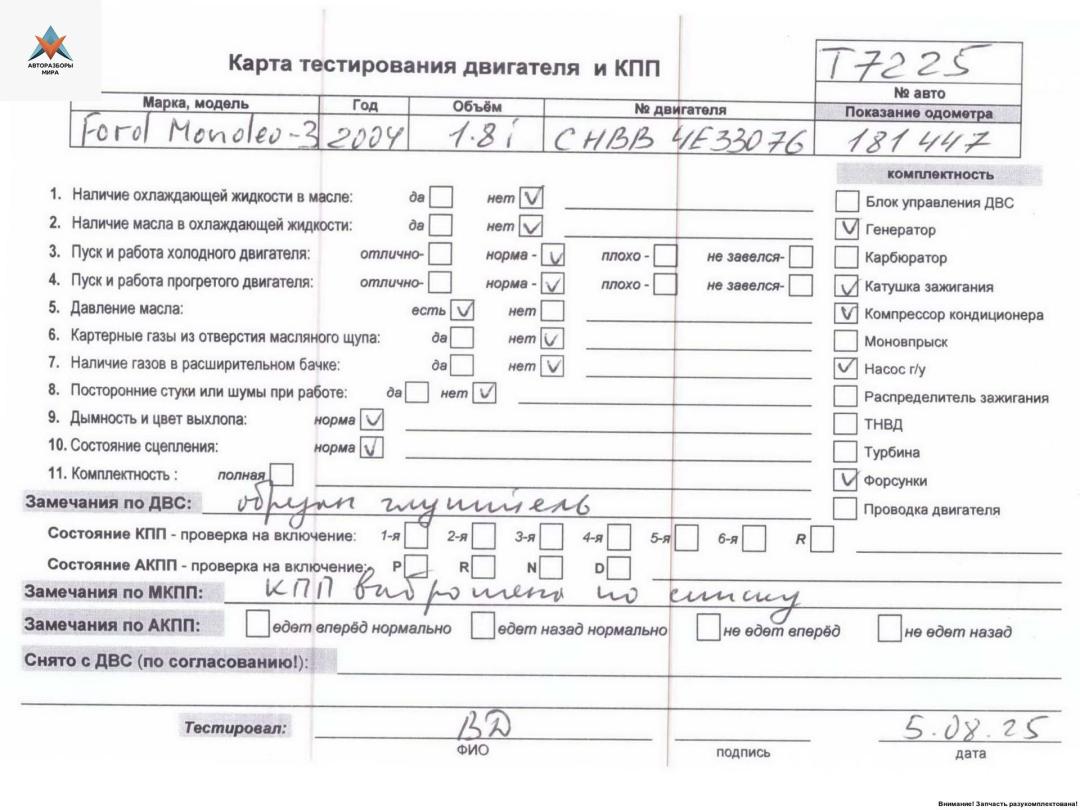 АВТОРАЗБОРЫ
МИРА
Карта тестирования двигателя и КПП
T7225
№ авто
Марка, модель Год Объём № двигателя Показание одометра
Ford Mondeo-3 2004 1.8i CHBB 4E33076 181447
комплектность
1. Наличие охлаждающей жидкости в масле: да нет ✓
Блок управления ДВС
2. Наличие масла в охлаждающей жидкости: да нет ✓
✓ Генератор
3. Пуск и работа холодного двигателя: отлично- норма - ✓ плохо - не завелся-
Карбюратор
4. Пуск и работа прогретого двигателя: отлично- норма - ✓ плохо - не завелся-
✓ Катушка зажигания
5. Давление масла: есть ✓ нет
✓ Компрессор кондиционера
6. Картерные газы из отверстия масляного щупа: да нет ✓
Моновпрыск
7. Наличие газов в расширительном бачке: да нет ✓
✓ Насос г/у
8. Посторонние стуки или шумы при работе: да нет ✓
Распределитель зажигания
9. Дымность и цвет выхлопа: норма ✓
ТНВД
10. Состояние сцепления: норма ✓
Турбина
11. Комплектность : полная
✓ Форсунки
Замечания по ДВС: обрезан глушитель
Проводка двигателя
Состояние КПП - проверка на включение: 1-я 2-я 3-я 4-я 5-я 6-я R
Состояние АКПП - проверка на включение: P R N D
Замечания по МКПП: КПП выброшена по списку
Замечания по АКПП: едет вперёд нормально едет назад нормально не едет вперёд не едет назад
Снято с ДВС (по согласованию!):
Тестировал: ВД 5.08.25
ФИО подпись дата
Внимание! Запчасть разукомплектована!